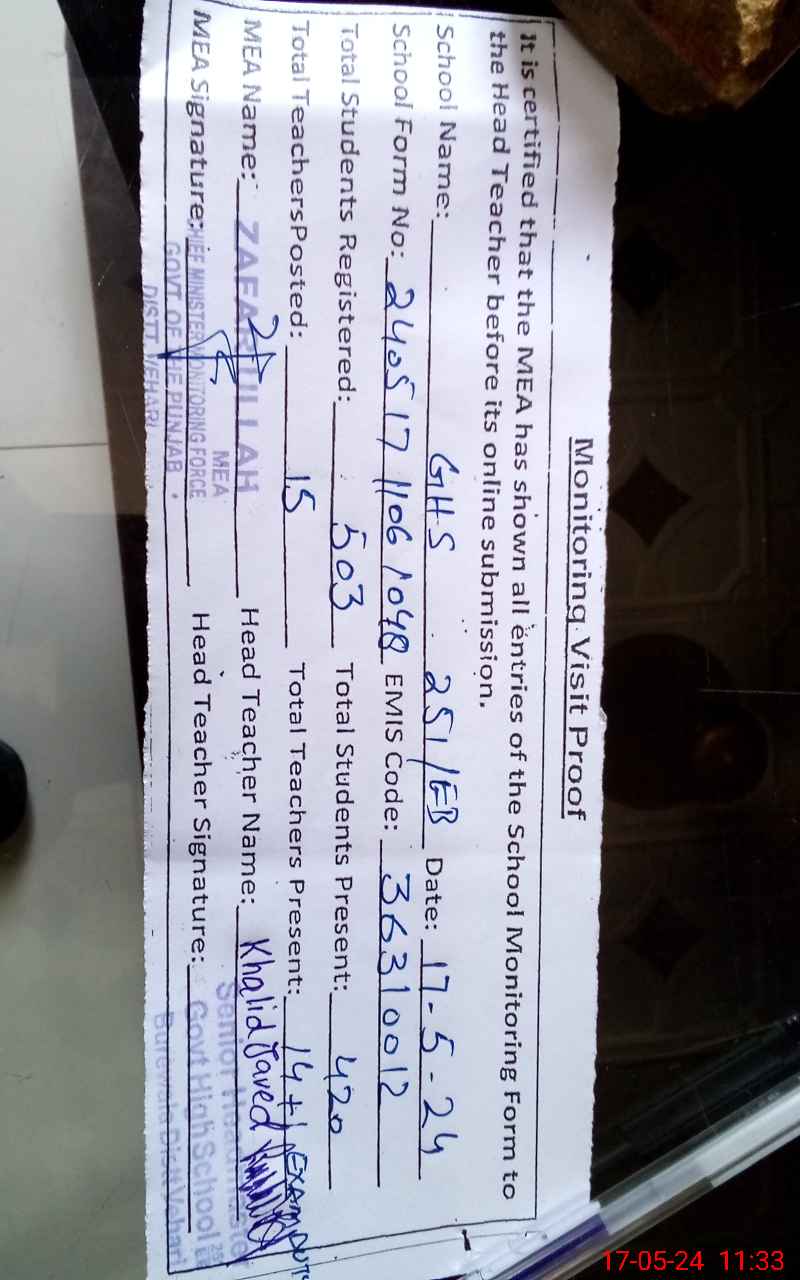 Monitoring Visit Proof
It is certified that the MEA has shown all entries of the School Monitoring Form to
the Head Teacher before its online submission.
School Name: GHS 251/EB Date: 17-5-24
School Form No: 240517 1106 1048 EMIS Code: 36310012
Total Students Registered: 503 Total Students Present: 420
Total TeachersPosted: 15 Total Teachers Present: 14+1 EXAM DUTY
MEA Name: ZAFAR ULLAH Head Teacher Name: Khalid Javed
MEA
Senior Headmaster
MEA Signature: CHIEF MINISTER MONITORING FORCE Head Teacher Signature: Govt High School
GOVT OF THE PUNJAB
DISTT VEHARI
Burewala Distt Vehari
17-05-24 11:33